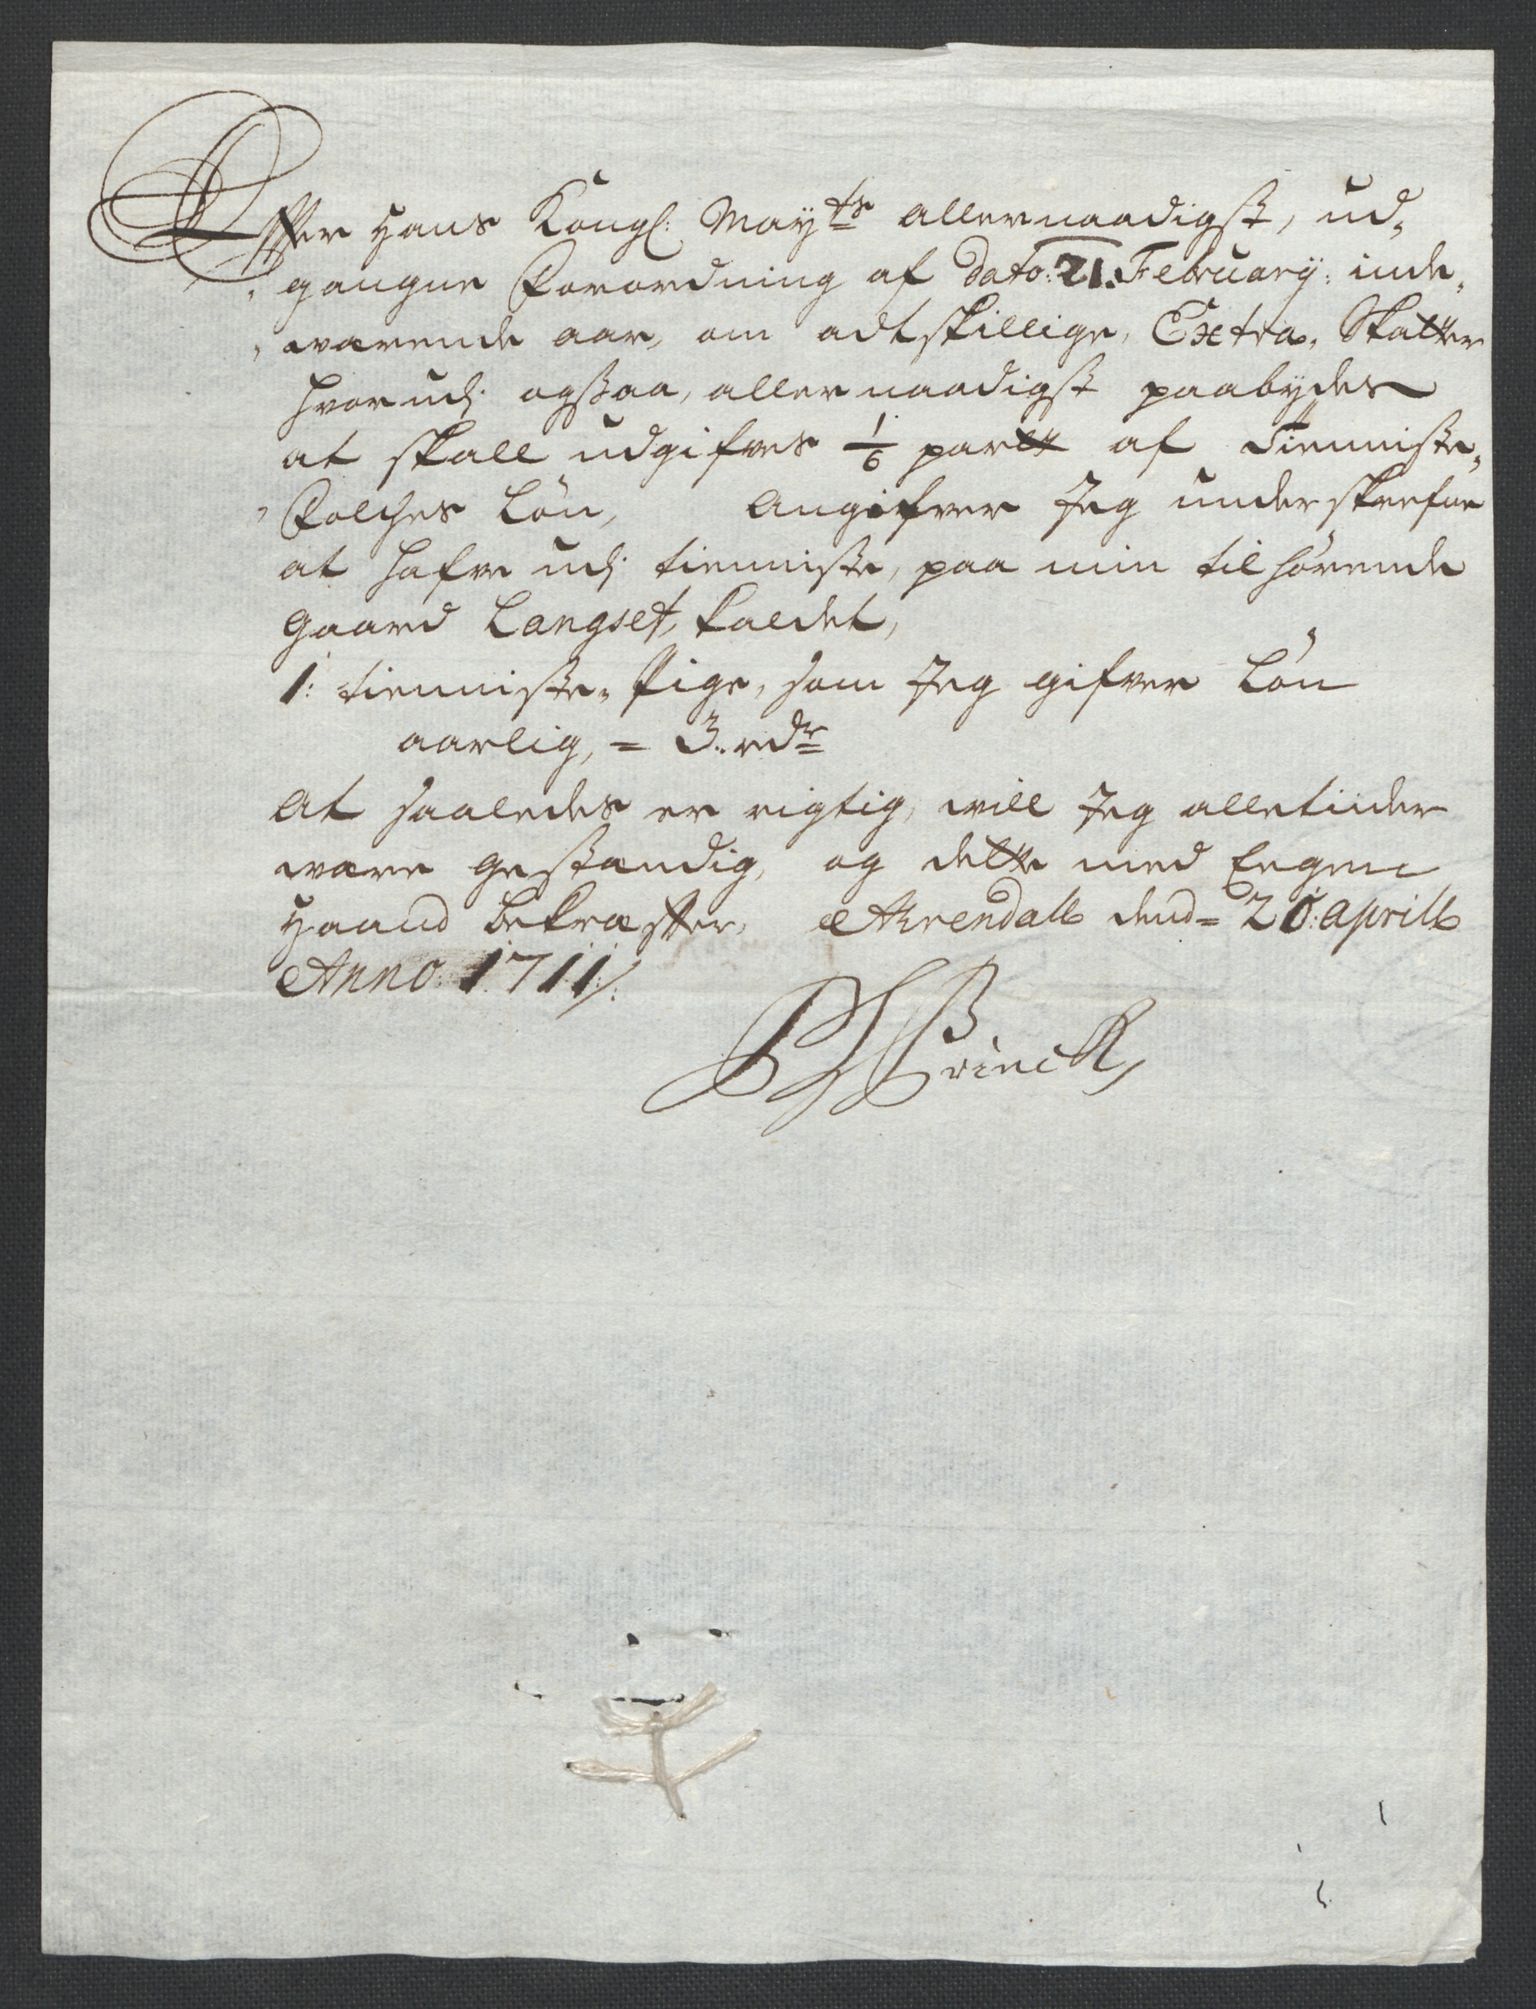 Effter Hans Kongl: May.ts allernaadigst, ud-
gangne Forordning af dato: 21. February: inde-
værende aar, om adtskillige, Extra, Skatter
hvorudj ogsaa, allernaadigst paabydes
at skall udgifves 1/6 partt af Tienniste-
Folches Lön, Angifver Jeg underskrefne
at hafve udj tienniste, paa min tilhörende
gaard Langset, kaldet,
1: tienniste-Pige, som Jeg gifver Lön
aarlig, = 3. rdr
At saaledes er rigtig, will Jeg alletiider
være gestændig, og dette med Eegen
Haand bekræffter, Ahrendall dend= 20. aprill
Anno: 1711/:
Brinck,